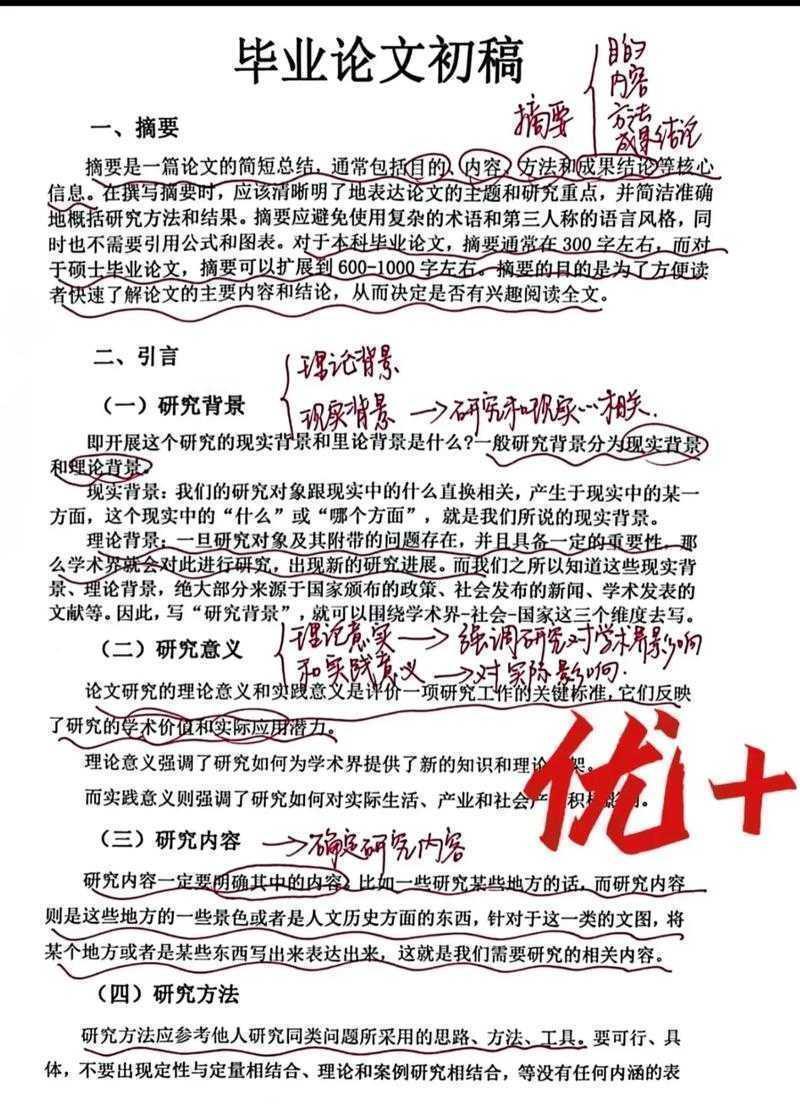 毕业论文初稿
目的
内容
方法
成果结论
摘要
一、摘要
摘要是一篇论文的简短总结，通常包括目的、内容、方法和成果结论等核心
信息。在撰写摘要时，应该清晰明了地表达论文的主题和研究重点，并简洁准确
地概括研究方法和结果。摘要应避免使用复杂的术语和第三人称的语言风格，同
时也不需要引用公式和图表。对于本科毕业论文，摘要通常在 300 字左右，而对
于硕士毕业论文，摘要可以扩展到 600-1000 字左右。摘要的目的是为了方便读
者快速了解论文的主要内容和结论，从而决定是否有兴趣阅读全文。
二、引言
理论背景
（一）研究背景
现实背景 →研究和现实…相关.
即开展这个研究的现实背景和里论背景是什么?一般研究背景分为现实背景
和理论背景。
现实背景：我们的研究对象跟现实中的什么直换相关，产生于现实中的某一
方面，这个现实中的“什么”或“哪个方面”，就是我们所说的现实背景。
理论背景：一旦研究对象及其附带的问题存在，并且具备一定的重要性，那
么学术界就会对此进行研究，出现新的研究进展。而我们之所以知道这些现实背
景、理论背景，绝大部分来源于国家颁布的政策、社会发布的新闻、学术发表的
文献等。因此，写“研究背景”，就可以围绕学术界-社会-国家这三个维度去写。
（二）研究意义
理论意实 → 强调研究对学术界影响
和实践意义 →对实际影响.
论文研究的理论意义和实践意义是评价一项研究工作的关键标准，它们反映
了研究的学术价值和实际应用潜力。
理论意义强调了研究如何为学术界提供了新的知识和理论 架。
而实践意义则强调了研究如何对实际生活、产业和社会产 积 影 。
优+
（三）研究内容 →确定研究内容
研究内容一定要明确其中的内容，比如一些研究某些地方的话，而研究内容
则是这些地方的一些景色或者是人文历史方面的东西，针对于这一类的文图，将
某个地方或者是某些东西写出来表达出来，这就是我们需要研究的相关内容。
（四）研究方法
研究方法应参考他人研究同类问题所采用的思路、方法、工具。要可行、具
体，不要出现定性与定量相结合、理论和案例研究相结合，等没有任何内涵的表